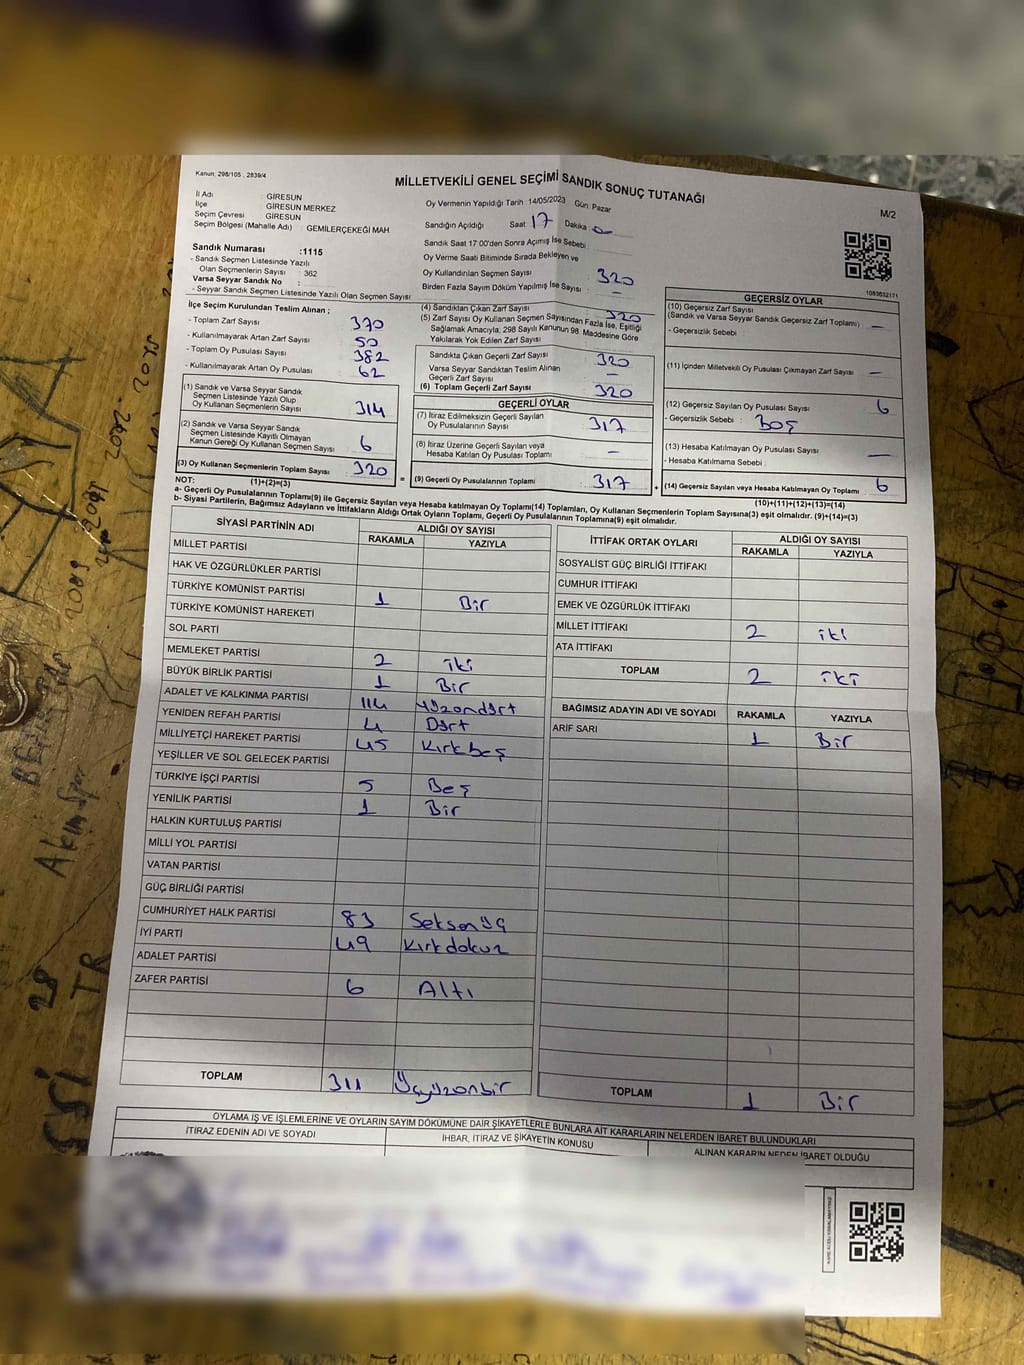 Kanun: 298/105 , 2839/4
MİLLETVEKİLİ GENEL SEÇİMİ SANDIK SONUÇ TUTANAĞI
M/2
İl Adı : GİRESUN
İlçe GİRESUN MERKEZ
Seçim Çevresi : GİRESUN
Seçim Bölgesi (Mahalle Adı) : GEMİLERÇEKEĞİ MAH.
Oy Vermenin Yapıldığı Tarih 14/05/2023 Gün: Pazar
Sandığın Açıldığı Saat 17 Dakika 0
Sandık Saat 17:00'den Sonra Açılmış İse Sebebi :
Oy Verme Saati Bitiminde Sırada Bekleyen ve
Oy Kullandırılan Seçmen Sayısı : 320
Birden Fazla Sayım Döküm Yapılmış İse Sayısı : -
Sandık Numarası :1115
- Sandık Seçmen Listesinde Yazılı
Olan Seçmenlerin Sayısı : 362
Varsa Seyyar Sandık No :
- Seyyar Sandık Seçmen Listesinde Yazılı Olan Seçmen Sayısı
1083632171
İlçe Seçim Kurulundan Teslim Alınan ;
- Toplam Zarf Sayısı 370
- Kullanılmayarak Artan Zarf Sayısı 50
- Toplam Oy Pusulası Sayısı 382
- Kullanılmayarak Artan Oy Pusulası 62
(1) Sandık ve Varsa Seyyar Sandık
Seçmen Listesinde Yazılı Olup
Oy Kullanan Seçmenlerin Sayısı 314
(2) Sandık ve Varsa Seyyar Sandık
Seçmen Listesinde Kayıtlı Olmayan
Kanun Gereği Oy Kullanan Seçmen Sayısı 6
(3) Oy Kullanan Seçmenlerin Toplam Sayısı 320
(1)+(2)=(3)
(4) Sandıktan Çıkan Zarf Sayısı 320
(5) Zarf Sayısı Oy Kullanan Seçmen Sayısından Fazla İse, Eşitliği
Sağlamak Amacıyla, 298 Sayılı Kanunun 98. Maddesine Göre
Yakılarak Yok Edilen Zarf Sayısı
Sandıkta Çıkan Geçerli Zarf Sayısı 320
Varsa Seyyar Sandıktan Teslim Alınan
Geçerli Zarf Sayısı -
(6) Toplam Geçerli Zarf Sayısı 320
GEÇERLİ OYLAR
(7) İtiraz Edilmeksizin Geçerli Sayılan
Oy Pusulalarının Sayısı 317
(8) İtiraz Üzerine Geçerli Sayılan veya
Hesaba Katılan Oy Pusulası Toplamı -
= (9) Geçerli Oy Pusulalarının Toplamı 317 +
GEÇERSİZ OYLAR
(10) Geçersiz Zarf Sayısı
(Sandık ve Varsa Seyyar Sandık Geçersiz Zarf Toplamı) -
- Geçersizlik Sebebi :
(11) İçinden Milletvekili Oy Pusulası Çıkmayan Zarf Sayısı -
(12) Geçersiz Sayılan Oy Pusulası Sayısı 6
- Geçersizlik Sebebi : Boş
(13) Hesaba Katılmayan Oy Pusulası Sayısı -
- Hesaba Katılmama Sebebi :
(14) Geçersiz Sayılan veya Hesaba Katılmayan Oy Toplamı 6
(10)+(11)+(12)+(13)=(14)
NOT:
a- Geçerli Oy Pusulalarının Toplamı(9) ile Geçersiz Sayılan veya Hesaba katılmayan Oy Toplamı(14) Toplamları, Oy Kullanan Seçmenlerin Toplam Sayısına(3) eşit olmalıdır. (9)+(14)=(3)
b- Siyasi Partilerin, Bağımsız Adayların ve İttifakların Aldığı Ortak Oyların Toplamı, Geçerli Oy Pusulalarının Toplamına(9) eşit olmalıdır.
SİYASİ PARTİNİN ADI ALDIĞI OY SAYISI
RAKAMLA YAZIYLA
MİLLET PARTİSİ
HAK VE ÖZGÜRLÜKLER PARTİSİ
TÜRKİYE KOMÜNİST PARTİSİ 1 Bir
TÜRKİYE KOMÜNİST HAREKETİ
SOL PARTİ
MEMLEKET PARTİSİ 2 iki
BÜYÜK BİRLİK PARTİSİ 1 Bir
ADALET VE KALKINMA PARTİSİ 114 Yüzondört
YENİDEN REFAH PARTİSİ 4 Dört
MİLLİYETÇİ HAREKET PARTİSİ 45 Kırkbeş
YEŞİLLER VE SOL GELECEK PARTİSİ
TÜRKİYE İŞÇİ PARTİSİ 5 Beş
YENİLİK PARTİSİ 1 Bir
HALKIN KURTULUŞ PARTİSİ
MİLLİ YOL PARTİSİ
VATAN PARTİSİ
GÜÇ BİRLİĞİ PARTİSİ
CUMHURİYET HALK PARTİSİ 83 Seksenüç
İYİ PARTİ 49 Kırkdokuz
ADALET PARTİSİ
ZAFER PARTİSİ 6 Altı
TOPLAM 311 Üçyüzonbir
İTTİFAK ORTAK OYLARI ALDIĞI OY SAYISI
RAKAMLA YAZIYLA
SOSYALİST GÜÇ BİRLİĞİ İTTİFAKI
CUMHUR İTTİFAKI
EMEK VE ÖZGÜRLÜK İTTİFAKI
MİLLET İTTİFAKI 2 iki
ATA İTTİFAKI
TOPLAM 2 iki
BAĞIMSIZ ADAYIN ADI VE SOYADI RAKAMLA YAZIYLA
ARİF SARI 1 Bir
TOPLAM 1 Bir
OYLAMA İŞ VE İŞLEMLERİNE VE OYLARIN SAYIM DÖKÜMÜNE DAİR ŞİKAYETLERLE BUNLARA AİT KARARLARIN NELERDEN İBARET BULUNDUKLARI
İTİRAZ EDENİN ADI VE SOYADI İHBAR, İTİRAZ VE ŞİKAYETİN KONUSU ALINAN KARARIN NEDEN İBARET OLDUĞU